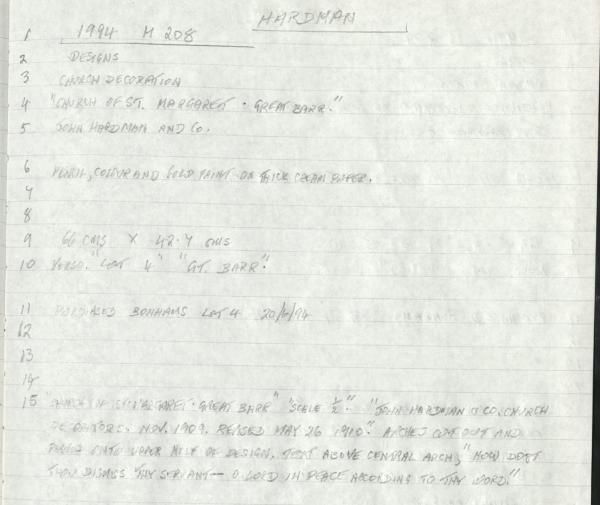 HARDMAN
1 1994 H 208
2 DESIGNS
3 CHURCH DECORATION
4 "CHURCH OF ST. MARGARET · GREAT BARR."
5 JOHN HARDMAN AND CO.
6 PENCIL, COLOUR AND GOLD PAINT ON THICK CREAM PAPER.
7
8
9 66 cms X 42.7 cms
10 VERSO. "LOT 4" "GT. BARR".
11 PURCHASED BONHAMS LOT 4 20/6/94
12
13
14
15 CHURCH OF ST MARGARET · GREAT BARR" "SCALE ½". "JOHN HARDMAN & CO. CHURCH
DECORATORS. NOV. 1909. REVISED MAY 26 1910". ARCHES CUT OUT AND
ONTO UPPER HALF OF DESIGN. TEXT ABOVE CENTRAL ARCH, "NOW DOST
THOU DISMISS THY SERVANT — O LORD IN PEACE ACCORDING TO THY WORD."